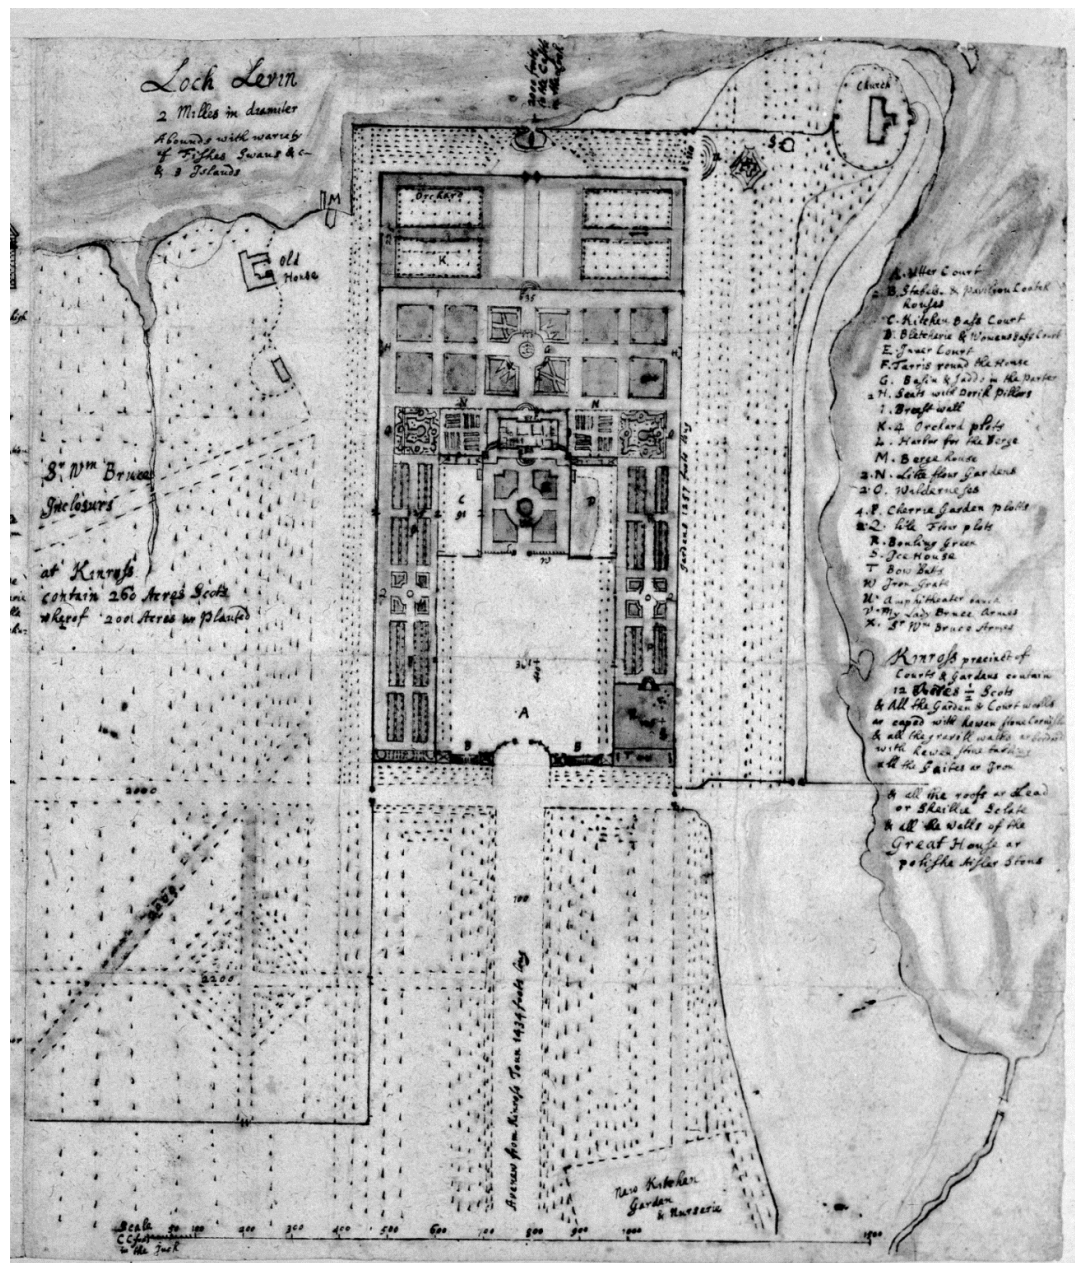 Loch Levin
2 Milles in diamiter
Abounds with variety
of Fishes Swans & c
& 3 Islands
2000 foots
to the Castle
in the Loch
Church
S
M
Orchard
K
Old
House
635
T
G
H
H
N
N
Sr. Wm Bruce
Inclosurs
at Kinross
contain 260 Acres Scots
wherof 200 Acres ar Planted
C
D
W
Gardens 1257 foots long
A
B
B
A. Utter Court
2 B. Stables & Pavilion Coatch
houses
C. Kitchen Bass Court
D. Bletcherie & Womens Bass Court
E. Inner Court
F. Tarris round the House
G. Basin & Jaddo in the Parter
2 H. Seats with Dorik Pillers
I. Breast wall
K. 4 Orchard plots
L. Harbor for the Berge
M. Berge house
2. N. Litle flour Gardens
2 O. Wildernesses
4. P. Cherrie Garden plotts
2. Q. litle Flour plots
R. Bouling Green
S. Ice House
T Bow Buts
W Iron Grate
U Amphitheater
V. My Lady Bruce Armes
X. Sr Wm Bruce Armes
Kinross precinct of
Courts & Gardens contain
12 Acres ½ Scots
& All the Garden & Court walls
ar caped with hewen stone
& all the gravill walks ar
with hewen stone
all the Gaites ar Iron
& all the roofs ar Lead
or Skaillie Sclate
& all the walls of the
Great House ar
polishe Aisler Stons
2000
2200
100
Avenew from Kinross Toun 1434 foots long
New Kitchen
Garden
& Nurserie
Scale 50 100 200 300 400 500 600 700 800 900 1000 1500
to the Inch